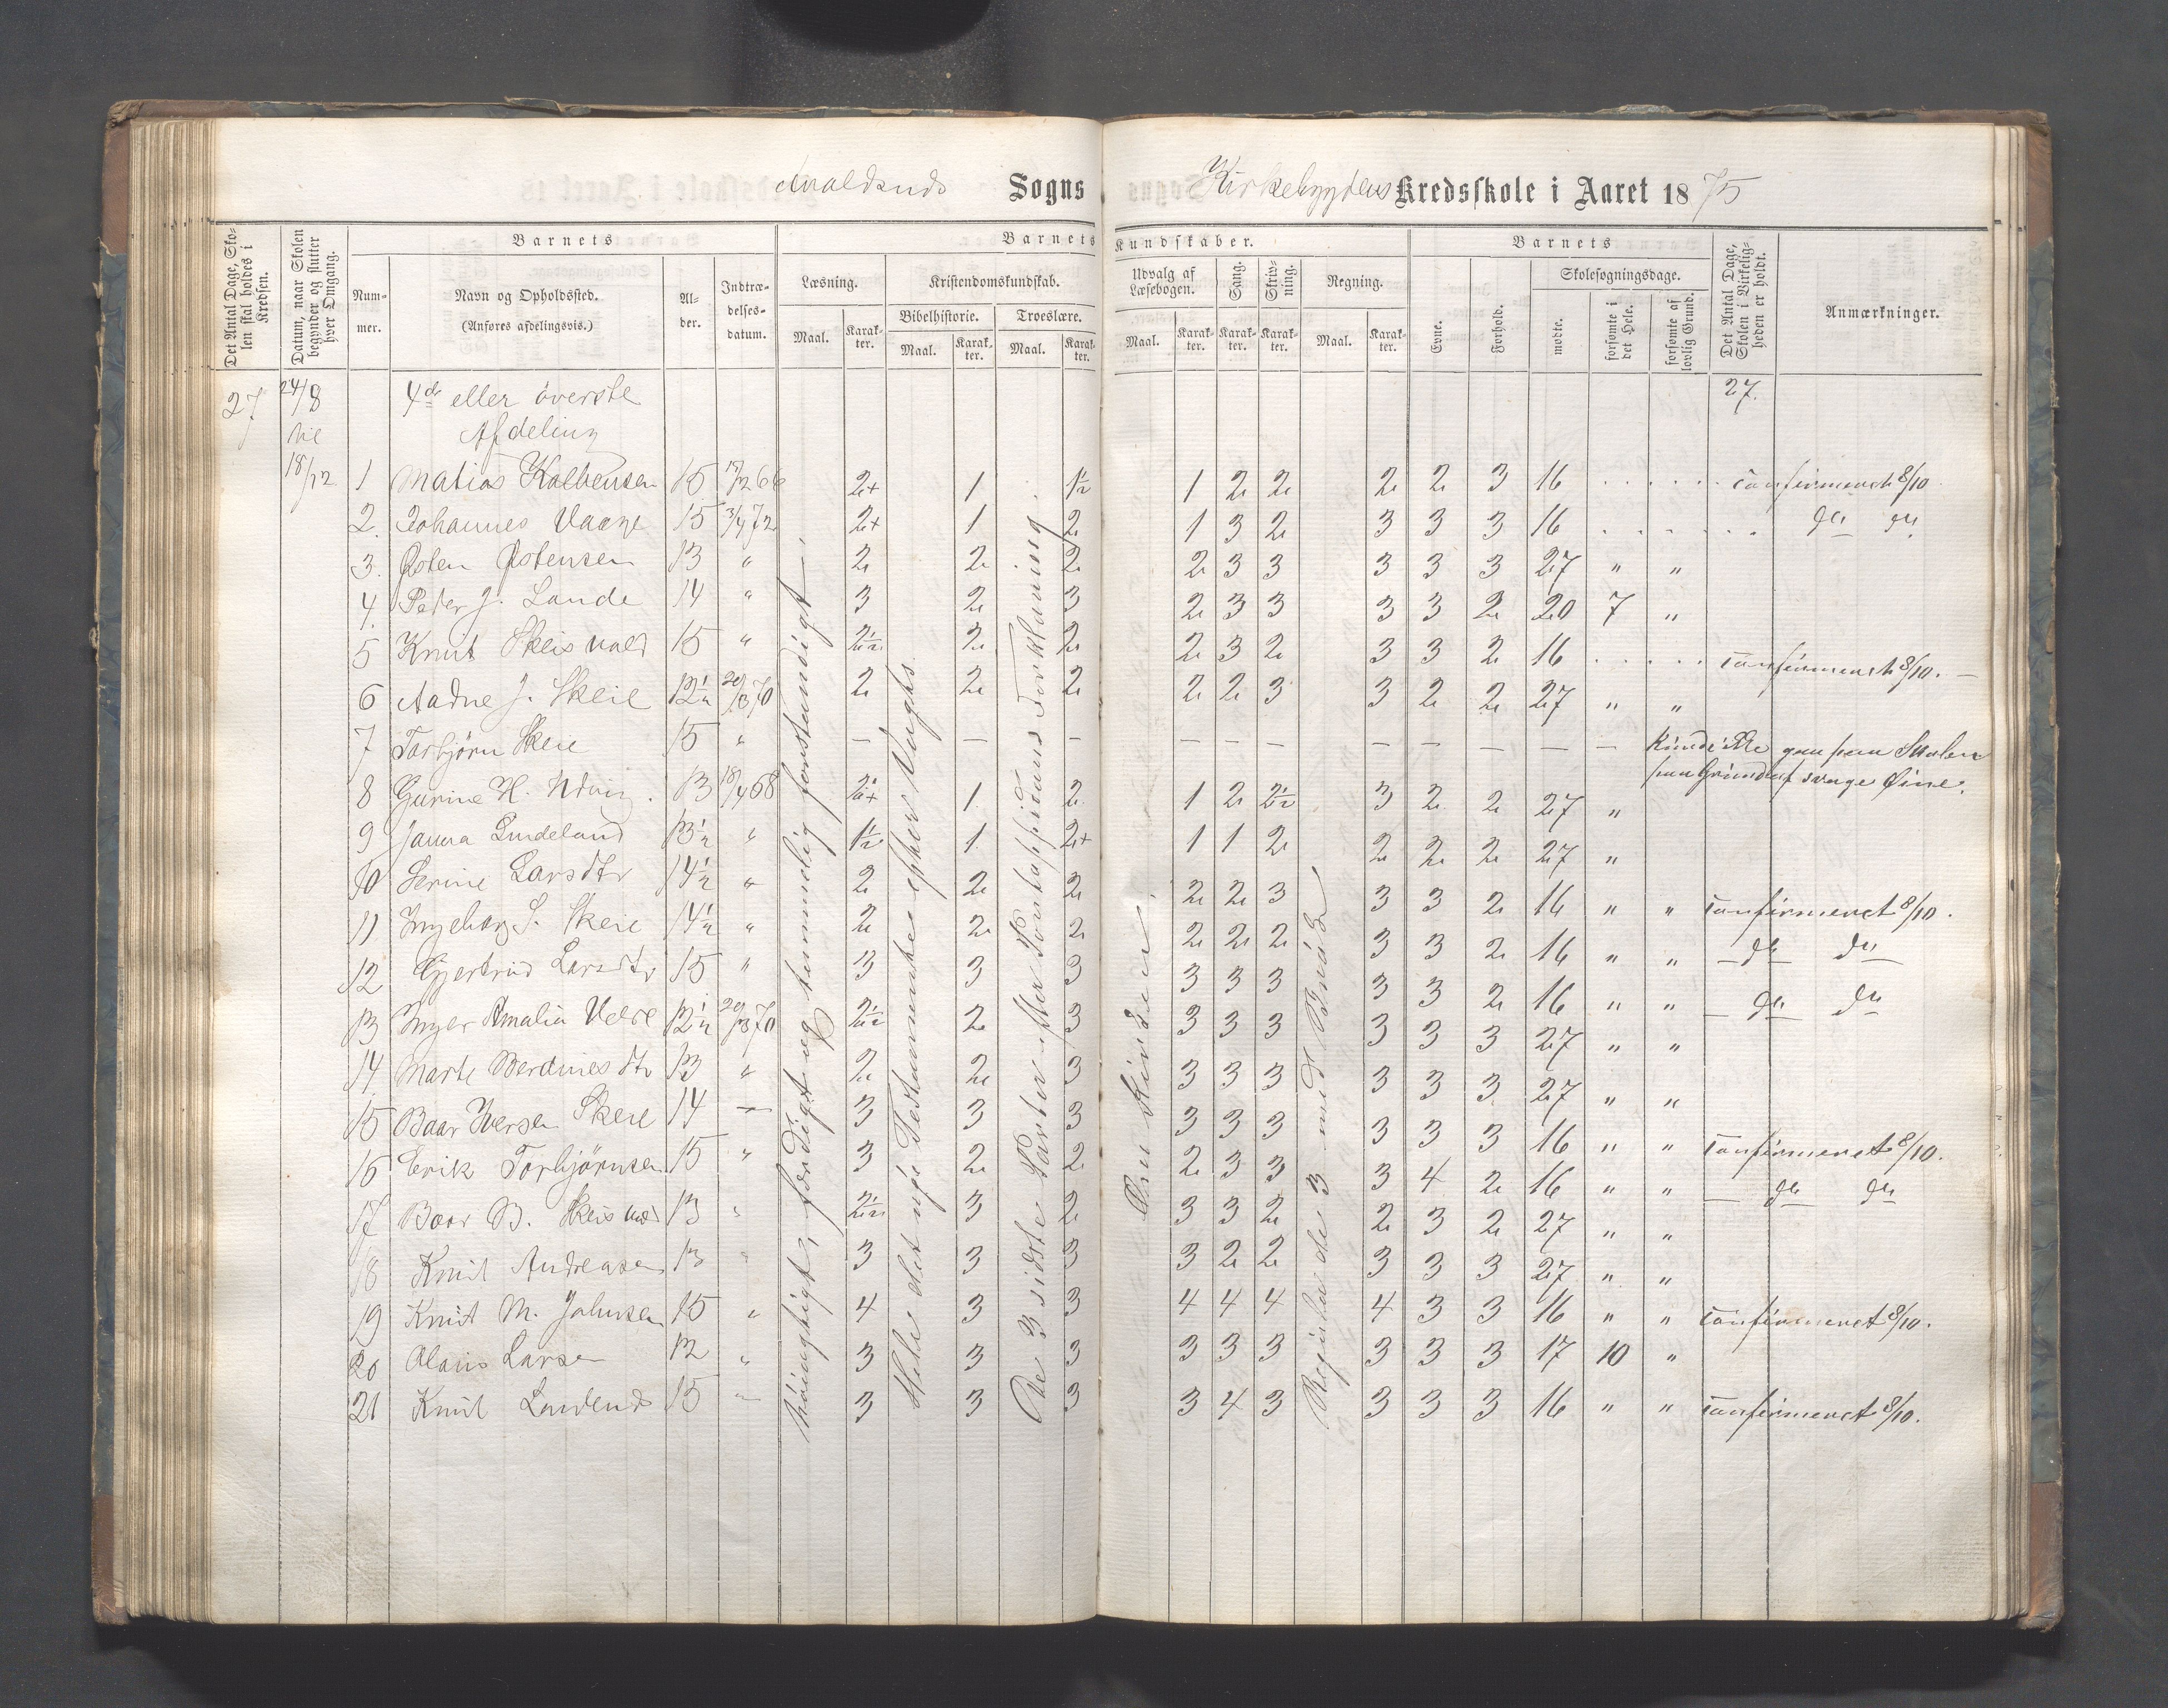 Sogns Kirkebygdens Kredsskole i Aaret 1875
Det Antal Dage, Skolen skal holdes i Kredsen.
Datum, naar Skolen begynder og slutter hver Omgang.
Barnets
Nummer.
Navn og Opholdssted.
(Anføres afdelingsvis.)
Alder.
Indtrædelsesdatum.
Barnets Kundskaber.
Læsning.
Maal. Karakter.
Kristendomskundskab.
Bibelhistorie. Troeslære.
Maal. Karakter. Maal. Karakter.
Udvalg af Læsebogen.
Maal. Karakter.
Sang. Karakter.
Skrivning. Karakter.
Regning.
Maal. Karakter.
Barnets
Evne. Forhold.
Skolesøgningsdage.
mødte. forsømte i det Hele. forsømte af lovlig Grund.
Det Antal Dage, Skolen i Virkeligheden er holdt.
Anmærkninger.
27 24/8 4de eller øverste 27.
til Afdeling
18/12 1 Matias Kolbensen 15 2+ 1 1½ 1 2 2 2 2 3 16 confirmeret 8/10
2. Johannes Vaage 15 3/4 72 2+ 1 2 1 3 2 3 3 3 16 do do
3. Østen Østensen 13 " 2 2 2 2 3 3 3 3 3 27 " "
4. Peter J. Lande 14 " 3 2 3 2 3 3 3 3 2 20 7 "
5 Knut Skeisvold 15 " 2½ 2 2 2 3 2 3 3 2 16 confirmeret 8/10. —
6 Aadne J. Skeie 12½ 29/3 70 2 2 2 2 2 3 3 2 2 27 " "
7 Torbjørn Skeie 15 " — — — — — — — — — — — Kunde ikke gaa paa Skolen
paa Grund af svage Øine.
8 Gurine H. Udvig 13 18/4 68 1 2 1 2 2½ 3 2 2 27 "
9 Janna Lindeland 13½ " 1½ 1 2+ 1 1 2 2 2 2 27 "
10 Serine Larsdtr 14½ " 2 2 2 2 2 3 3 3 2 16 " " confirmeret 8/10.
11 Ingeborg S. Skeie 14½ " 2 2 2 2 2 2 3 3 2 16 " " — do do
12 Gjertrud Larsdtr 15 " 3 3 3 3 3 3 3 3 2 16 " " — do do
13 Inger Amalia Velde 12½ 29/3 70 2½ 2 3 3 3 3 3 3 3 27 " "
14 Marte Berdinesdtr 13 " 2 2 3 3 3 3 3 3 3 27 " "
15 Baar Iversen Skeie 14 — 3 3 3 3 3 3 3 3 3 16 " " confirmeret 8/10.
16 Erik Torbjørnsen 15 " 3 2 2 2 3 3 3 4 2 16 " " — do do
17 Baar B. Skeisvold 13 " 2½ 3 2 3 3 2 2 3 2 27 " "
18 Knut Andreasen 13 " 3 3 3 3 2 2 3 3 3 27 " "
19 Knut M. Johnsen 15 " 4 3 3 4 4 4 4 3 3 16 " " confirmeret 8/10.
20 Olaus Larsen 12 " 3 3 3 3 3 3 3 3 3 17 10 "
21 Knut 15 " 3 3 3 3 4 3 3 3 3 16 " " confirmeret 8/10.
Nøiagtigt, færdigt og temmelig forstandigt.
Hele det nye Testamente efter Vogts.
De 3 sidste Parter efter Pontoppidans Forklaring.
Regula de 3 med Brøk